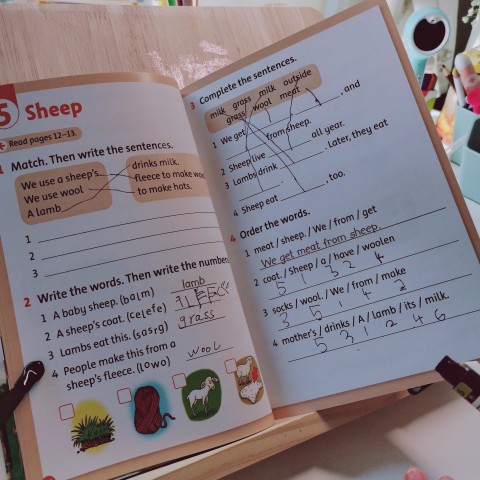 5 Sheep
Read pages 12–13.
1 Match. Then write the sentences.
We use a sheep's
We use wool
A lamb
drinks milk.
fleece to make
to make hats.
1
2
3
2 Write the words. Then write the
1 A baby sheep. (balm) lamb
2 A sheep's coat. (Celefe)
3 Lambs eat this. (sasrg) grass
4 People make this from a
sheep's fleece. (lowo) wool
3 Complete the sentences.
milk grass milk outside
grass wool meat
1 We get , and
from sheep.
2 Sheep live all year.
3 Lambs drink . Later, they eat
.
4 Sheep eat , too.
4 Order the words.
1 meat / sheep. / We / from / get
We get meat from sheep.
2 coat. / Sheep / a / have / woolen
5 1 3 2 4
3 socks / wool. / We / from / make
3 5 1 4 2
4 mother's / drinks / A / lamb / its / milk.
5 3 1 2 4 6